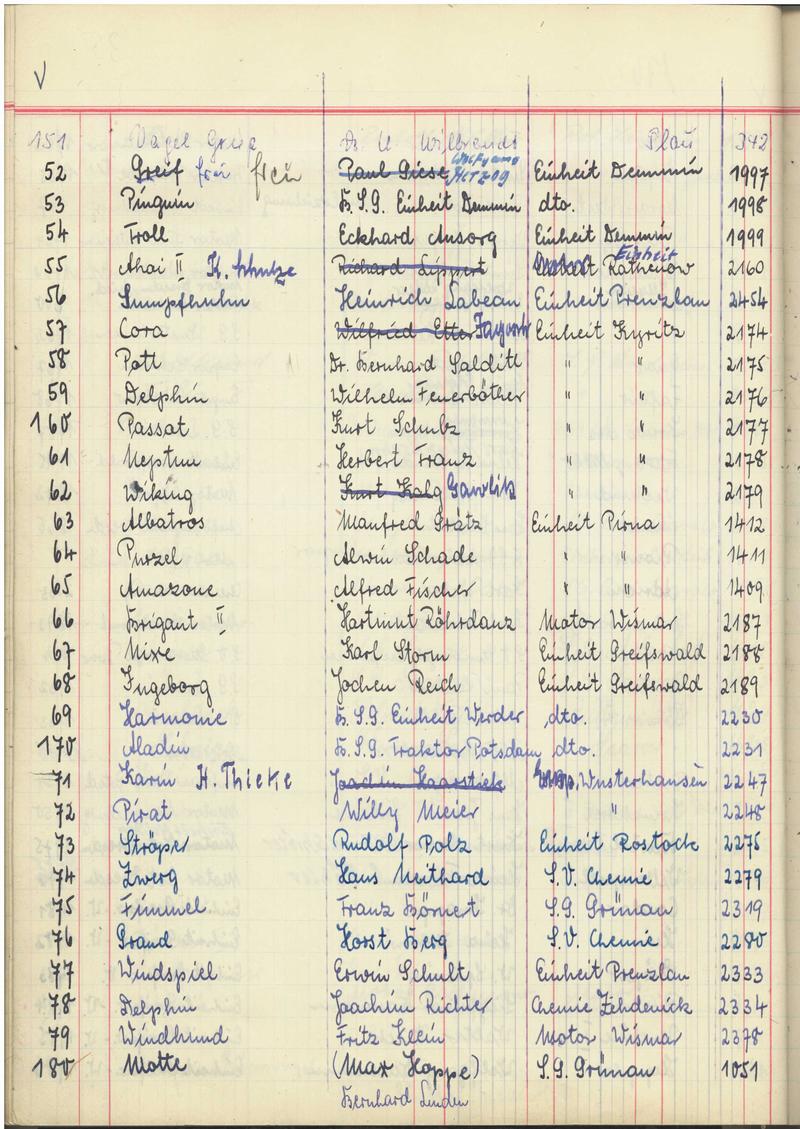 V
151 Vogel Greif Dr. U. Wilbrandt Plau 342
52 Greif frei frei Paul Giese Wolfgang Herzog Einheit Demmin 1997
53 Pinguin B.S.G. Einheit Demmin dto. 1998
54 Troll Eckhard Ansorg Einheit Demmin 1999
55 Ahai II K. Schulze Richard Lippert Einheit Rathenow 2160
56 Sumpfhuhn Heinrich Labean Einheit Prenzlau 2454
57 Cora Wilfried Etter Einheit Kyritz 2174
58 Pott Dr. Bernhard Salditt " " 2175
59 Delphin Wilhelm Feuerböther " " 2176
160 Passat Kurt Schulz " " 2177
61 Neptun Herbert Franz " " 2178
62 Wiking Kurt Kalg Gawlik " " 2179
63 Albatros Manfred Grätz Einheit Pirna 1412
64 Purzel Alwin Schade " " 1411
65 Amazone Alfred Fischer " " 1409
66 Brigant II Hartmut Röhrdanz Motor Wismar 2187
67 Nixe Karl Storm Einheit Greifswald 2188
68 Ingeborg Jochen Reich Einheit Greifswald 2189
69 Harmonie B.S.G. Einheit Werder dto. 2230
170 Aladin B.S.G. Traktor Potsdam dto. 2231
71 Karin H. Thieke Joachim Haarstick Wusterhausen 2247
72 Pirat Willy Meier " 2248
73 Ströper Rudolf Polz Einheit Rostock 2275
74 Zwerg Hans Neithard S.V. Chemie 2279
75 Fimmel Franz Börnert S.G. Grünau 2319
76 Grand Horst Berg S.V. Chemie 2280
77 Windspiel Erwin Schult Einheit Prenzlau 2333
78 Delphin Joachim Richter Chemie Zehdenick 2334
79 Windhund Fritz Klein Motor Wismar 2378
180 Motte (Max Hoppe) S.G. Grünau 1051
Bernhard Linden